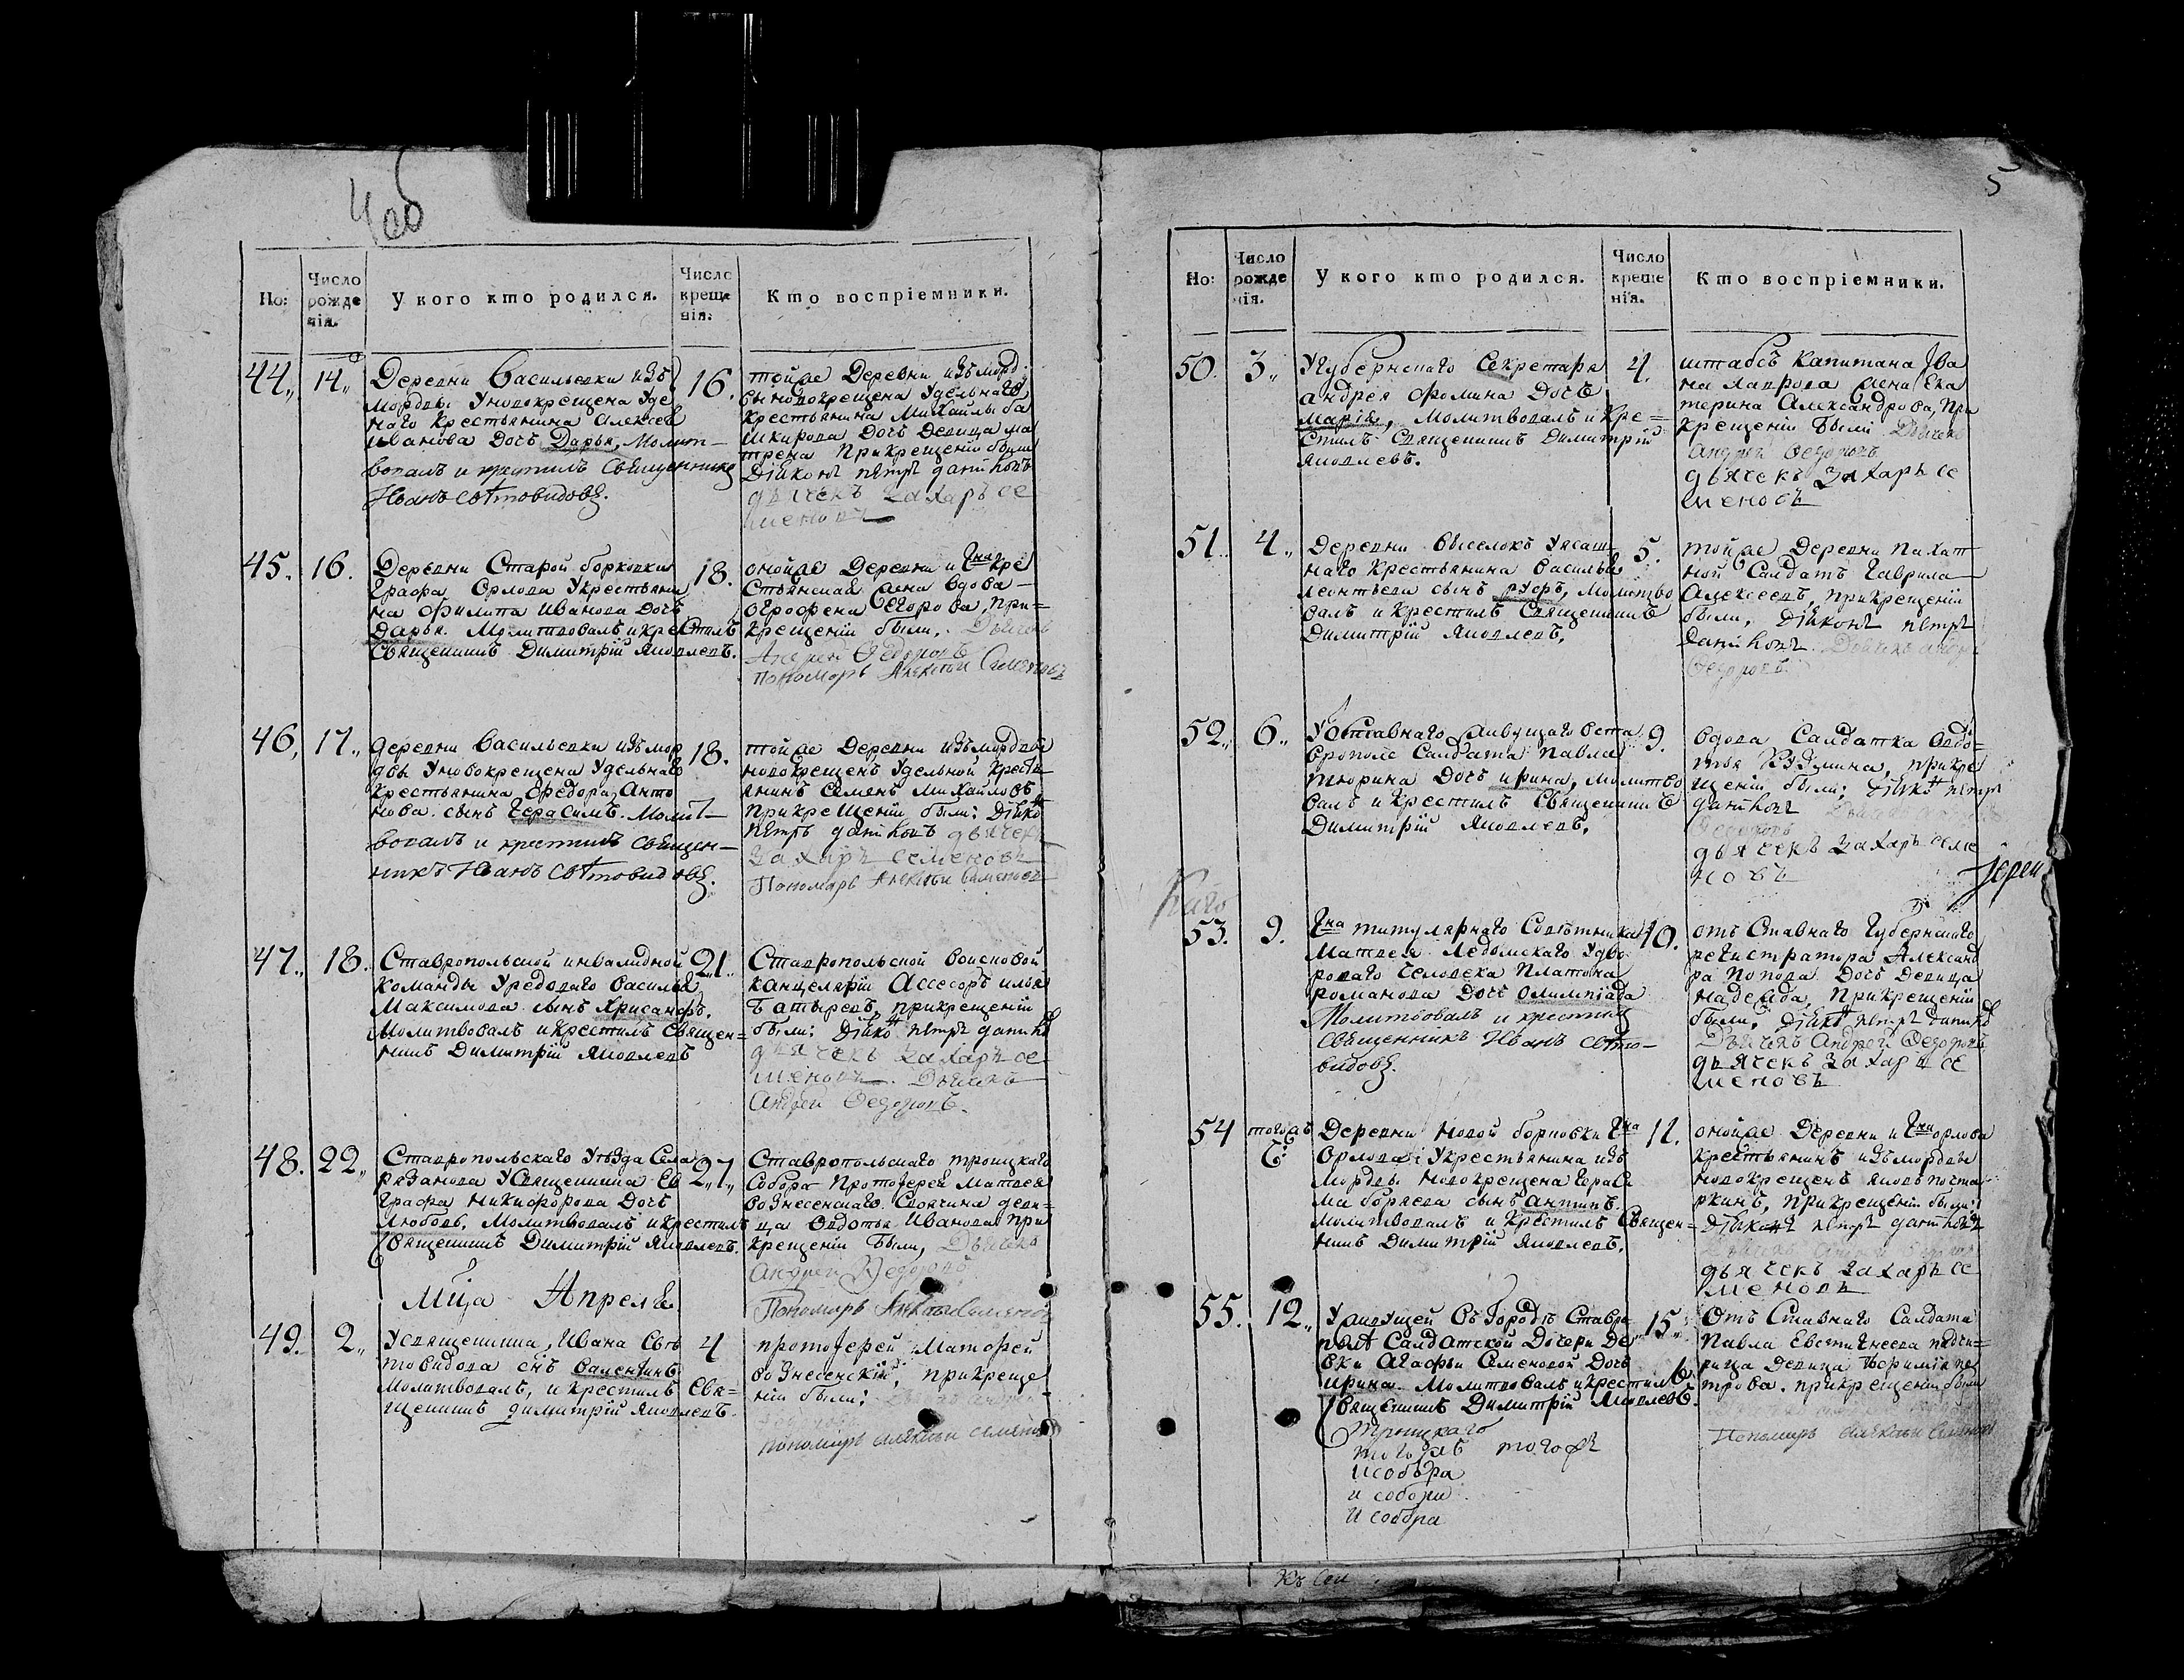 5
Но:
Число рожденія.
У кого кто родился.
Число крещенія:
Кто воспріемники.
44.
14
Деревни Васильевки изъ
мордвы Уновокрещена Уде
наго Крестьянина Алексея
Иванова Дочь Дарья, Молит-
вовалъ и крестилъ Священникъ
Иванъ Световидовъ.
16.
тойже Деревни изъ морд
вы новокрещена Удельнаго
Крестьянина Михайлы Ба
шкирова Дочь Девица Ма
трена Прикрещеніи были
Діаконъ петръ
дьячекъ Захаръ Се
меновъ
45.
16.
Деревни Старой борковки
Графа Орлова Укрестьяни
на Филипа Иванова Дочь
Дарья. Молитвовалъ и крестилъ
Священникъ Димитрій Яковлевъ.
18.
онойже Деревни и Гна кре
стьянская жена вдова
Огрофена Егорова, при=
крещеніи были, Дьячекъ
Андрей Федоровъ
Пономарь Алексѣй Семеновъ
46,
17.
деревни Васильевки изъ мор
двы Уновокрещена Удельнаго
Крестьянина Федора Анто
нова сынъ Герасимъ. Молит-
вовалъ и крестилъ Священ-
никъ Иванъ Световидовъ.
18.
тойже Деревни изъ мордвы
новокрещенъ Удельной Крестья
янинъ Семенъ Михайловъ
прикрещеніи были: Діяко
петръ дьячекъ
Захаръ Семеновъ
Пономарь Алексѣй Семеновъ
47.
18.
Ставропольской инвалидной
команды Урядоваго Василья
Максимова сынъ Хрисанфъ.
Молитвовалъ и крестилъ Священ=
никъ Димитрій Яковлевъ
21.
Ставропольской воисковой
канцелярій Ассесоръ илья
Батыревъ, прикрещеніи
были: Діяко петръ
дьячекъ Захаръ се
меновъ. Дьячекъ
Андрей Федоровъ.
48.
22.
Ставропольскаго Уѣзда Села
Рязанова Усвященника Ев
графа Никифорова Дочь
Любовь. Молитвовалъ и крестилъ
Священникъ Димитрій Яковлевъ.
27.
Ставропольскаго троицкаго
Собора Протоіерея Матвея
вознесенскаго Своячина деви=
ца Овдотья Иванова при
крещеніи Были, Дьячекъ
Андрей Федоровъ
Пономарь Алексѣй Семеновъ
Мца Апреля
49.
2.
Усвященника, Ивана Свѣ
товидова снъ Валентинъ
Молитвовалъ, и крестилъ Свя=
щенникъ димитрій Яковлевъ.
4
протоіерей Матфей
вознесенскій, прикреще
ніи были:
пономарь алексѣй семеновъ
Но:
Число рожденія.
У кого кто родился.
Число крещенія.
Кто воспріемники.
50.
3.
Угубернскаго Секретаря
андрея Фомина Дочь
Марія, Молитвовалъ и кре=
стилъ Священникъ Димитрій
Яковлевъ.
4.
штабсъ Капитана Ива
на Лаврова Жена Ека
терина Александрова, При
крещеніи Были Дьячекъ
Андрей Федоровъ
дьячекъ Захаръ се
меновъ
51.
4.
Деревни Выселокъ Уясаш
наго Крестьянина Василья
Леонтьева сынъ Егоръ, Молитво
валъ и Крестилъ Священникъ
Димитрій Яковлевъ.
5.
тойже Деревни Пахат
ной Салдатъ Гаврила
Алексеевъ, прикрещеніи
были, Діяконъ петръ
Дьячекъ
Федоровъ.
52.
6.
Уотставнаго живущаго Вста
врополе Салдата Павла
тюрина Дочь ирина, молитво
валъ и Крестилъ Священникъ
Димитрій Яковлевъ.
9.
вдова Салдатка Овдо=
тья Кузмина, прикре
щеніи были; діяко петръ
Федоровъ
дьячекъ Захаръ семе
новъ
Іереи
53.
9.
Гна титулярнаго Советника
Матвея Ледомскаго Удво
роваго человека Платона
романова Дочь Олимпіада
Молитвовалъ и крестилъ
Священникъ Иванъ Свето-
видовъ.
10.
отъ Ставнаго Губернскаго
регистратора Александ
ра Попова Дочь Девица
надежда, Прикрещеніи
были, діяко петръ
Дьячекъ Андрей Федоровъ
дьячекъ Захаръ се
меновъ
54
тогожъ
Деревни Новой борковки Гна
Орлова Укрестьянина изъ
Мордвы новокрещена Гераси
ма боряева сынъ Антипъ.
молитвовалъ и Крестилъ Священ=
никъ Димитрій Яковлевъ.
11.
онойже Деревни и Гни орлова
Крестьянинъ изъ мордвы
новокрещенъ яковъ
прикрещеніи были:
Діяконъ петръ
дьячекъ Захаръ се
меновъ
55.
12.
Уживущей Въ Городѣ Ставро
полѣ Салдатской Дочери Де
вки Агафьи Семеновой Дочь
ирина. Молитвовалъ и крестилъ
Священникъ Димитрій Яковлевъ.
Троицкаго
тогожъ тогожъ
и собора
и собори
и собора
15.
Отъ Ставнаго Салдата
Павла Евстигнеева падче=
рица девица пе
трова. прикрещеніи были
Пономарь алексѣй Семеновъ